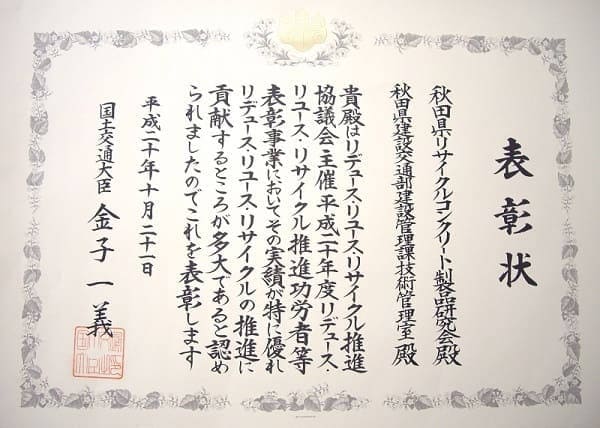 表彰状
秋田県リサイクルコンクリート製品研究会殿
秋田県建設交通部建設管理課技術管理室殿
貴殿はリデュース・リユース・リサイクル推進
協議会主催平成二十年度リデュース・
リユース・リサイクル推進功労者等
表彰事業においてその実績が特に優れ
リデュース・リユース・リサイクルの推進に
貢献するところが多大であると認め
られましたのでこれを表彰します
平成二十年十月二十一日
国土交通大臣 金子一義